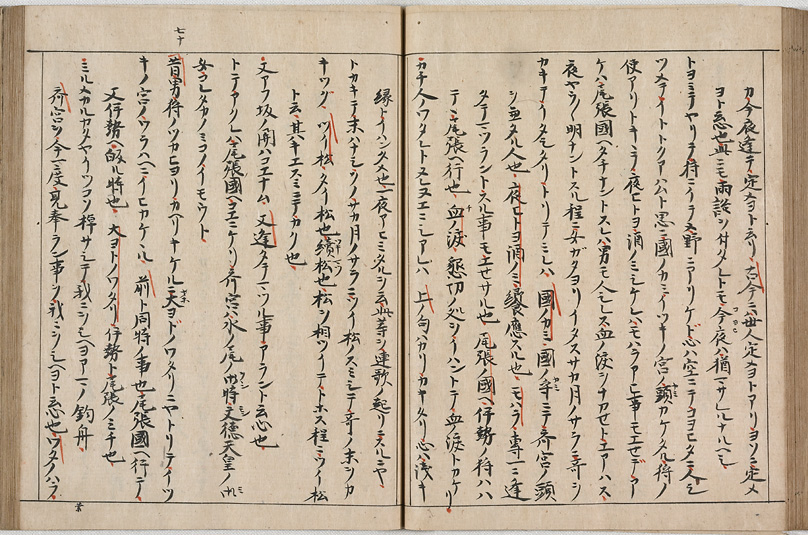 カ今夜逢テ定メヨト云リ、古今ニハ世人定メヨトアリヨソニ定メ
ヨト云心也此ニモ両説ヲ付タレトモ今夜ハ猶マサレルナルヘシ
トヨミテヤリテ狩ニイテヌ野ニアリケド心ハ空ニテコヨヒタニ人シ
ツメテイトトクアハント思ニ國ノカミイツキノ宮ノ頭カケタル狩ノ
使アリトキヽテ夜ヒトヨ酒ノミシケレハモハラアヒ事モエセデアケ
ケハ尾張國ヘタチナントスレハ男モ人シレス血ノ涙ヲナカセトエアハス
夜ヤウ〱明ナントスル程ニ女ガタヨリイタスサカ月ノサラニ哥ヲ
カキテイタシタリトリテミレハ 國ノカミ國ノ守ニテ斉宮ノ頭
ヲ兼タル人也、夜ヒトヨ酒ノミ饗應スル也、モハラ専一ニ逢
タテマツラントスル事モエセサル也 尾張ノ國ヘ伊勢ノ狩ハハ
テヽ尾張ヘ行也 血ノ涙 懇切ノ処ヲイハントテ血ノ涙トカケリ
カチ人ノワタレトヌレヌエニシアレハ 上ノ句ハカリカキタリ心ハ浅キ
縁トイハンタメ也一夜アヒミタルヲ云此等ヲ連歌ノ起リニスルニヤ、
トカキテ末ハナシソノサカ月ノサラニツイ松ノスミシテ哥ノ末ヲカ
キツグ、ツイ松、タイ松也續松也松ヲ相ツイテトホス程ニツイ松
ト云、其キエスミニテカク也
又アフ坂ノ関ハコエナム 又逢タテマツル事アラント云心也
トテアクレハ尾張國ヘコエニケリ斉宮ハ水ノ尾ノ御時文徳天皇ノ御
女コレタカノミコノイモウト
七十
昔男狩ノツカヒヨリカヘリキケルニ大ヨドノワタリニヤトリテイツ
キノ宮ノワラハヘニイヒカケヽル 前ト同時ノ事也尾張國ヘ行テ
又伊勢ヘ皈ル時也、大ヨトノワタリ伊勢ト尾張ノミチ也
ミルメカルカタヤイツコソ棹サシテ我ニヲシヘヨアマノ釣舟
斉宮ヲ今一度見奉ラン事ヲ我ニヲシヘヨト云心也ワタノハラ